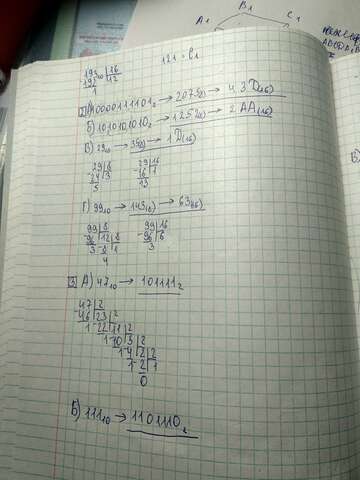 B1
A1 C1
121 - B1
193₁₀ |16
192 12
1
2 A) 10000111101₂ → 2075(8) → 43D(16)
Б) 1010101010₂ → 1252(8) → 2AA(16)
В) 29₁₀ → 35(8) → 1D(16)
29|8 29|16
-24 3 -16 1
5 13
Г) 99₁₀ → 143(8) → 63(16)
99|8 99|16
-96 12|8 -96 6
3 -8 1 3
4
3 А) 47₁₀ → 101111₂
47|2
-46 23|2
1 -22 11|2
1 -10
1 -4 2|2
1 -2 1
0
Б) 111₁₀ → 1101110₂